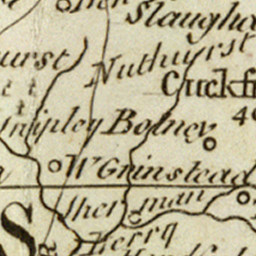 Slaugha
urst
Nuthurst
Cuckf
nipley
Bolney
40
W Grinstead
Sherman
Ferry
S